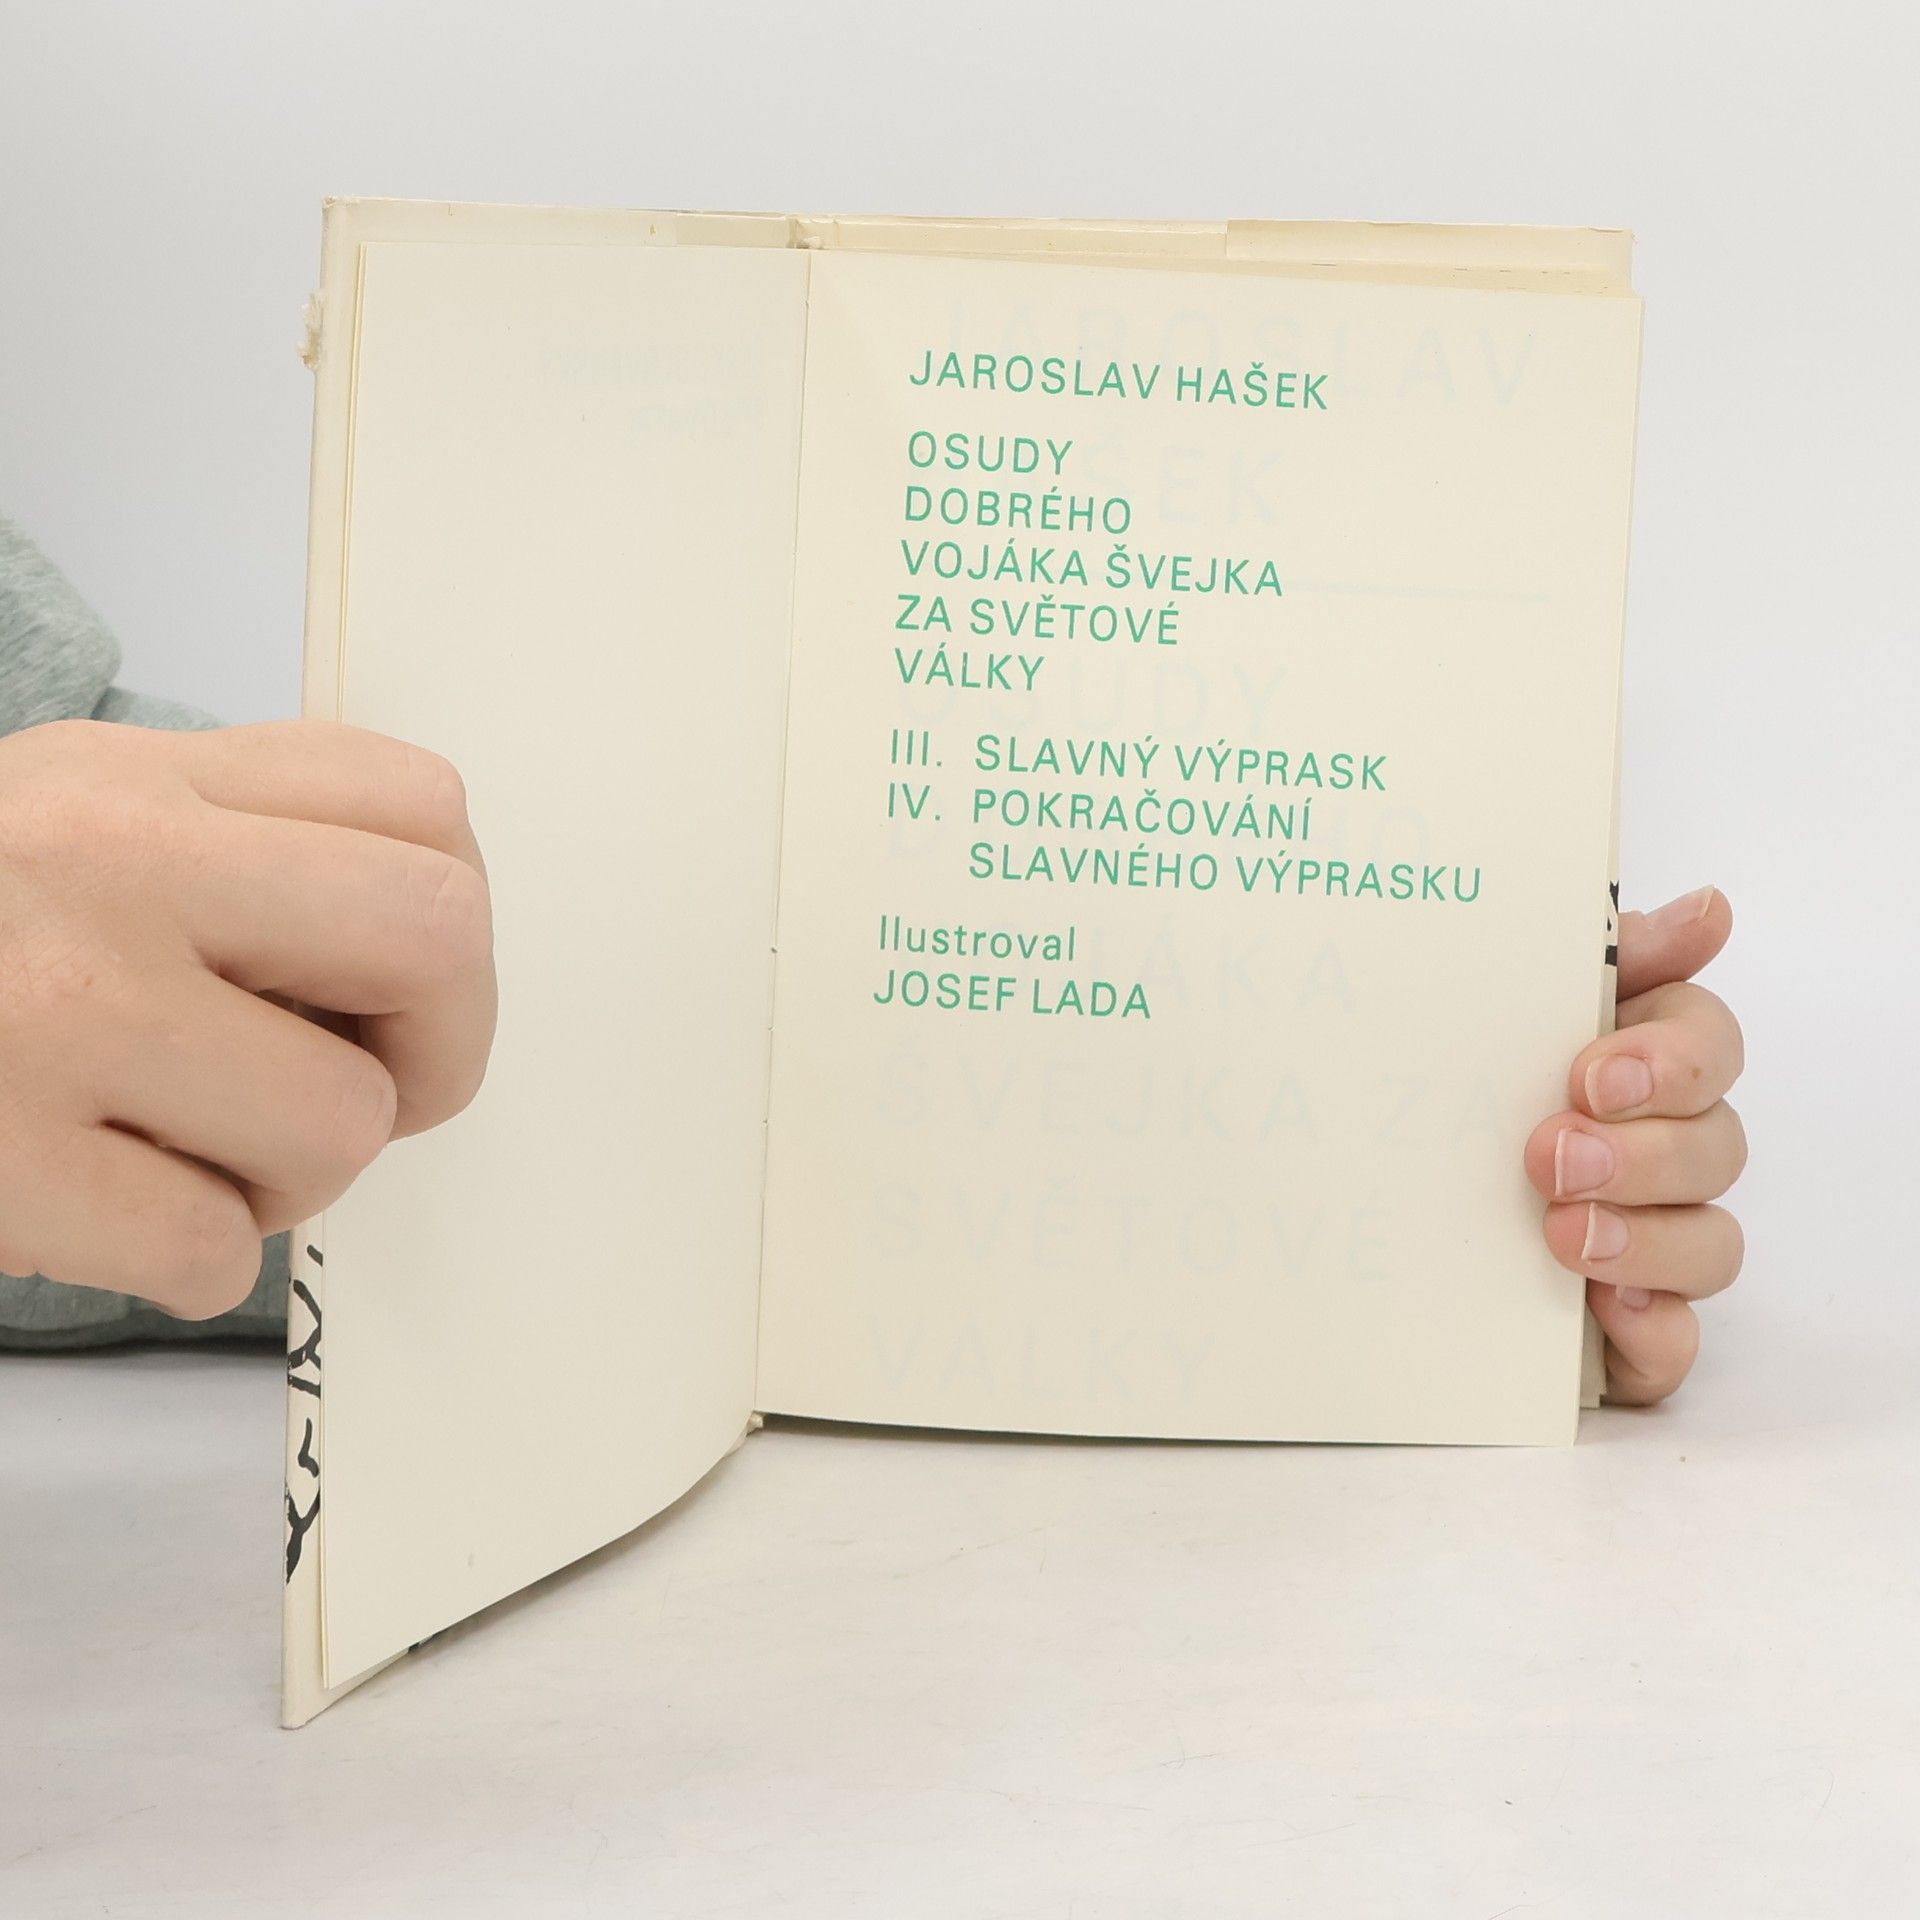 JAROSLAV HAŠEK
OSUDY
DOBRÉHO
VOJÁKA ŠVEJKA
ZA SVĚTOVÉ
VÁLKY
III. SLAVNÝ VÝPRASK
IV. POKRAČOVÁNÍ
SLAVNÉHO VÝPRASKU
Ilustroval
JOSEF LADA